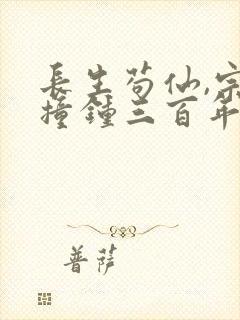 長生苟仙,宗
撞鐘三百年
普薩